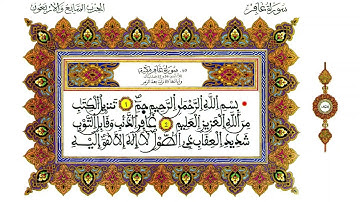 سورة غافر
الحزب السابع والأربعون
بسم الله الرحمن الرحيم حم ١ تنزيل الكتاب
من الله العزيز العليم ٢ غافر الذنب وقابل التوب
شديد العقاب ذي الطول لا إله إلا هو إليه